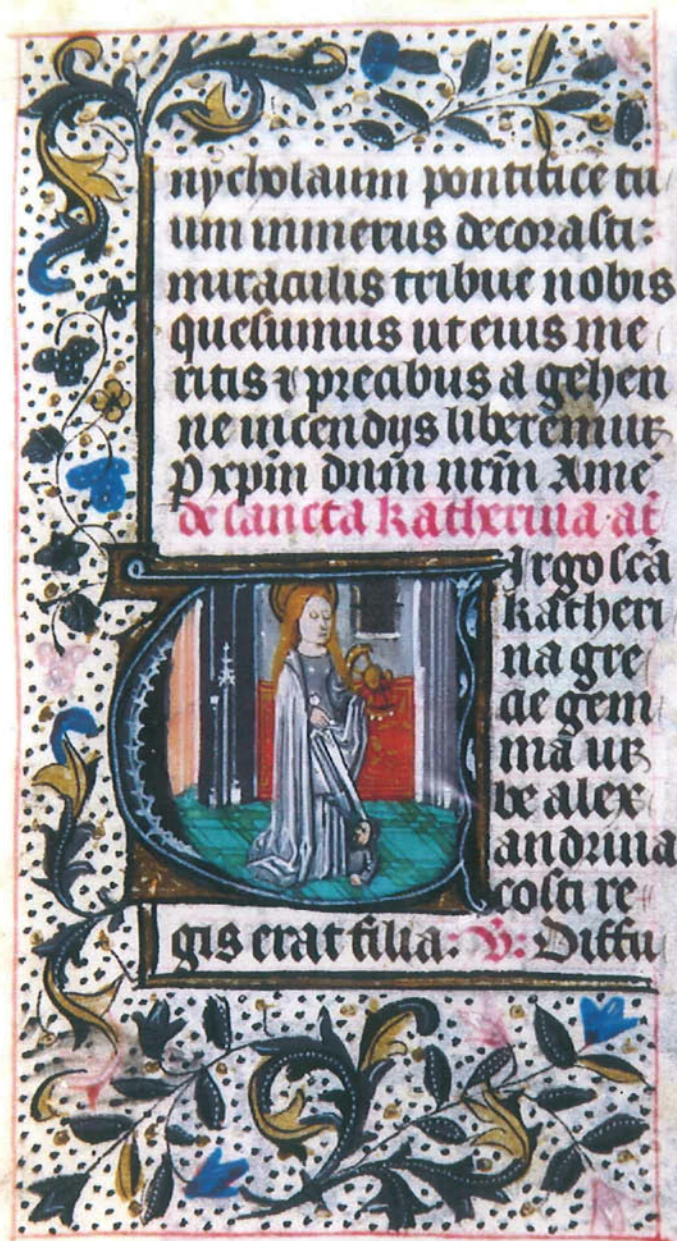 nycholaum pontifice tu
um innietis decorasti:
miraculis tribue nobis
quesumus ut eius me
ritis ⁊ precibus a gehen
ne incendijs liberemur
P xpm dnm nrm Ame
de sancta katherina. añ
Virgo scā
katheri
na gre
cie gem
ma ur
be alex
andrina
costi re
gis erat filia: V: Diffu